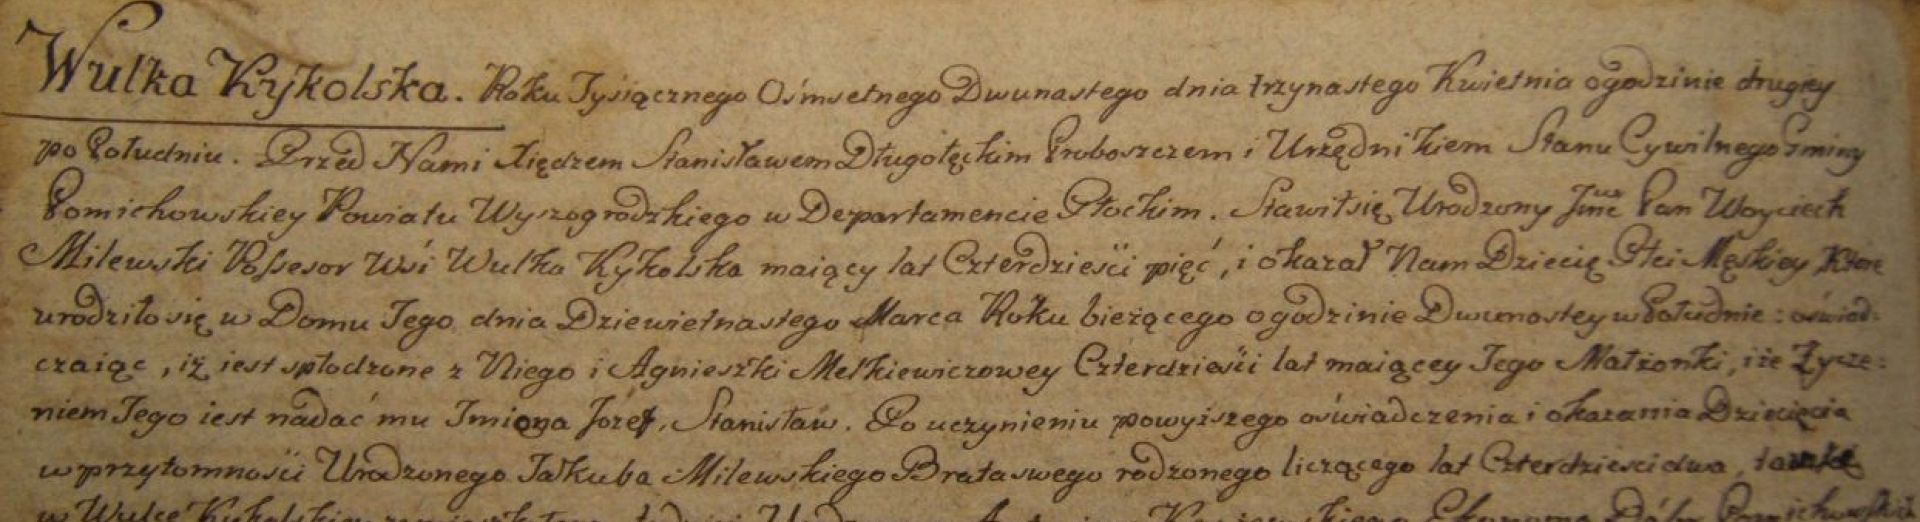 Wulka Kykolska. Roku Tysiącznego Ośmsetnego Dwunastego dnia trzynastego Kwietnia ogodzinie drugiey
po Południu. Przed Nami Xiędzem Stanisławem Długołęckim Proboszczem i Urzędnikiem Stanu Cywilnego Gminy
Pomichowskiey Powiatu Wyszogrodzkiego w Departamencie Płockim. Stawił się Urodzony Pan Woyciech
Milewski Possesor Wsi Wulka Kykolska maiący lat Czterdzieści pięć, i okazał Nam Dziecię Płci Męskiey które
urodziło się w Domu Jego dnia Dziewietnastego Marca Roku bieżącego ogodzinie Dwunastey w Południe: oświad-
czaiąc, iż iest spłodzone z Niego i Agnieszki Metkiewiczowey Czterdzieści lat maiącey Jego Małżonki, i że Życze:
niem Jego iest nadać mu Imiona Józef, Stanisław. Po uczynieniu powyższego oświadczenia i okazania Dziecięcia
w przytomności Urodzonego Jakuba Milewskiego Brata swego rodzonego liczącego lat Czterdzieści dwa,
w Wulce Kykolskiey